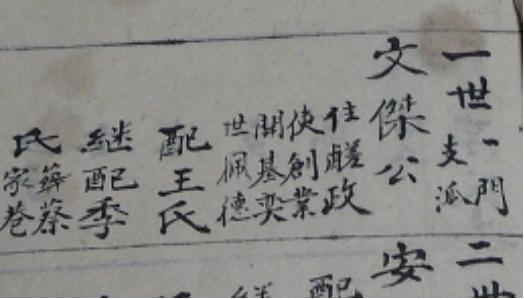 一世一門
支派
文傑公
住醝政
使創業
開基奕
世佩德
配王氏
継配季
氏葬蔡
家巷
二世
安
配
継